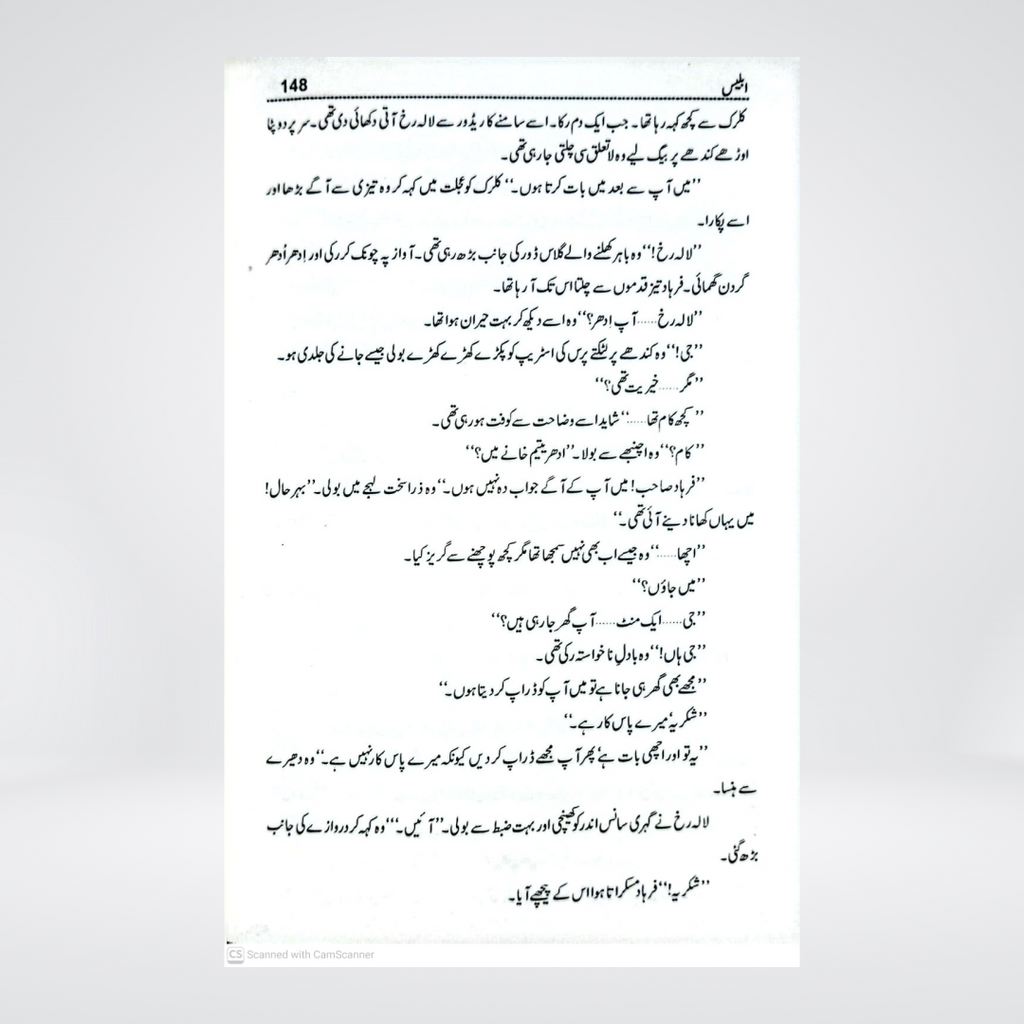 ابلیس 148
کلرک سے کچھ کہہ رہا تھا۔ جب ایک دم رکا۔ اسے سامنے کاریڈور سے لالہ رخ آتی دکھائی دی تھی۔ سر پر دوپٹا
اوڑھے کندھے پر بیگ لیے وہ لاتعلق سی چلتی جا رہی تھی۔
’’میں آپ سے بعد میں بات کرتا ہوں۔‘‘ کلرک کو عجلت میں کہہ کر وہ تیزی سے آگے بڑھا اور
اسے پکارا۔
’’لالہ رخ!‘‘ وہ باہر کھلنے والے گلاس ڈور کی جانب بڑھ رہی تھی۔ آواز پہ چونک کر رکی اور اِدھر اُدھر
گردن گھمائی۔ فرہاد تیز قدموں سے چلتا اس تک آ رہا تھا۔
’’لالہ رخ...... آپ اِدھر؟‘‘ وہ اسے دیکھ کر بہت حیران ہوا تھا۔
’’جی!‘‘ وہ کندھے پر لٹکتے پرس کی اسٹریپ کو پکڑے کھڑے کھڑے بولی جیسے جانے کی جلدی ہو۔
’’مگر...... خیریت تھی؟‘‘
’’کچھ کام تھا......‘‘ شاید اسے وضاحت سے کوفت ہو رہی تھی۔
’’کام؟‘‘ وہ اچنبھے سے بولا۔ ’’ادھر یتیم خانے میں؟‘‘
’’فرہاد صاحب! میں آپ کے آگے جواب دہ نہیں ہوں۔‘‘ وہ ذرا سخت لہجے میں بولی۔ ’’بہرحال!
میں یہاں کھانا دینے آئی تھی۔‘‘
’’اچھا......‘‘ وہ جیسے اب بھی نہیں سمجھا تھا مگر کچھ پوچھنے سے گریز کیا۔
’’میں جاؤں؟‘‘
’’جی...... ایک منٹ...... آپ گھر جا رہی ہیں؟‘‘
’’جی ہاں!‘‘ وہ بادلِ ناخواستہ رکی تھی۔
’’مجھے بھی گھر ہی جانا ہے تو میں آپ کو ڈراپ کر دیتا ہوں۔‘‘
’’شکریہ‘ میرے پاس کار ہے۔‘‘
’’یہ تو اور اچھی بات ہے‘ پھر آپ مجھے ڈراپ کر دیں کیونکہ میرے پاس کار نہیں ہے۔‘‘ وہ دھیرے
سے ہنسا۔
لالہ رخ نے گہری سانس اندر کو کھینچی اور بہت ضبط سے بولی۔ ’’آئیں۔‘‘‘ وہ کہہ کر دروازے کی جانب
بڑھ گئی۔
’’شکریہ!‘‘ فرہاد مسکراتا ہوا اس کے پیچھے آیا۔
CS Scanned with CamScanner